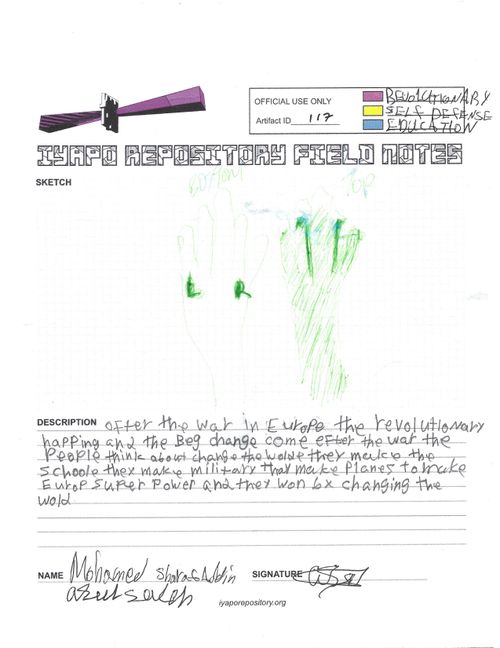 OFFICIAL USE ONLY
Artifact ID 117
REVOLUTIONARY
SELF DEFENSE
EDUCATION
IYAPO REPOSITORY FIELD NOTES
SKETCH
BOTTOM
TOP
L
R
DESCRIPTION After the war in Europe the revolutionary
happing and the Beg change come efter the war the
People think about change the wolde they make the
Schoole they make military that make Planes to make
Europ Super Power and they won by changing the
wold
NAME Mohamed SIGNATURE
iyaporepository.org